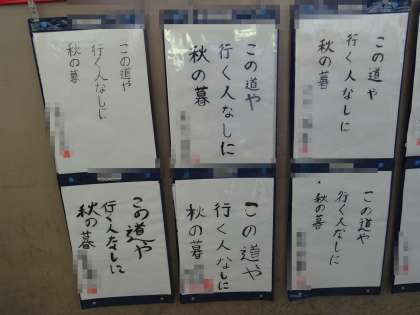 この道や
行く人なしに
秋の暮
この道や
行く人なしに
秋の暮
この道や
行く人なしに
秋の暮
この道や
行く人なしに
秋の暮
この道や
行く人なしに
秋の暮
この道や
行く人なしに
秋の暮